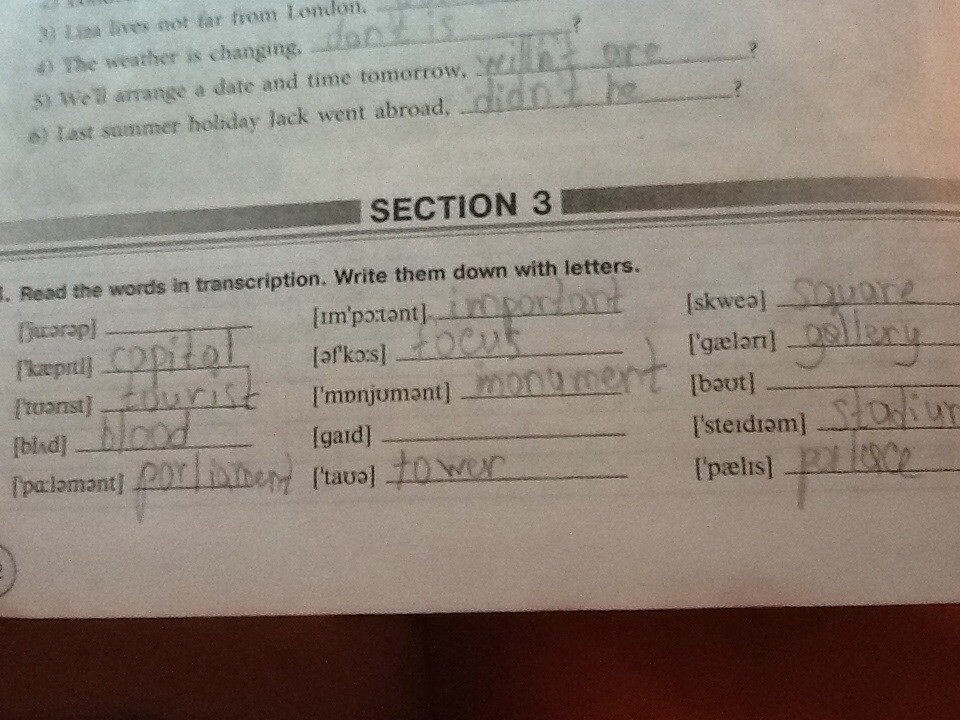 3) Liza lives not far from London,
4) The weather is changing, dont is ?
5) We'll arrange a date and time tomorrow, willn't are ?
6) Last summer holiday Jack went abroad, didn't he ?
SECTION 3
. Read the words in transcription. Write them down with letters.
['jʊərəp] [ɪm'pɔ:tənt] important [skweə] square
['kæpɪtl] capital [əf'kɔ:s] focus ['gælərɪ] gallery
['tʊərɪst] tourist ['mɒnjʊmənt] monument [bəʊt]
[blʌd] blood [gaɪd] ['steɪdɪəm] stadium
['pɑ:ləmənt] parliament ['taʊə] tower ['pælɪs] parlace